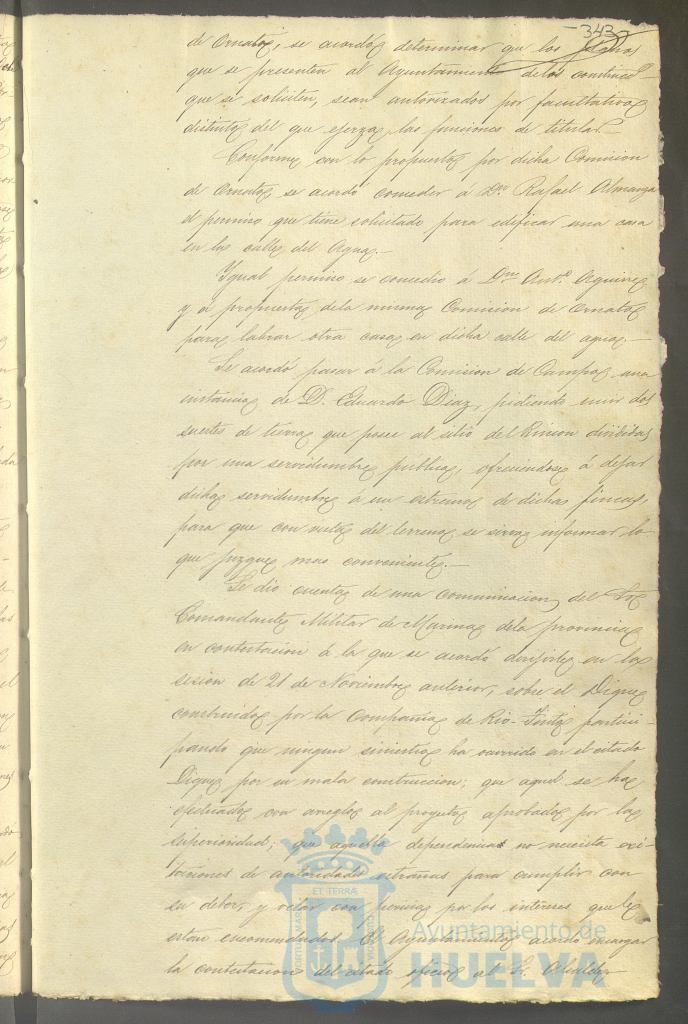 343
de Ornato, se acordó determinar que los planos
que se presenten al Ayuntamiento de las
que se soliciten, sean autorizados por facultativo
distinto del que ejerza las funciones de titular.
Conforme con lo propuesto por dicha Comision
de Ornato se acordó conceder á Dn. Rafael Almanza
el permiso que tiene solicitado para edificar una casa
en la calle del Agua.
Ygual permiso se concedio á Dn. Anto. Aguirre
y á propuesta de la misma Comision de Ornato
para labrar otra casa en dicha calle del agua.
Se acordó pasar á la Comision de Campo una
instancia de D. Eduardo Diaz, pidiendo unir dos
suertes de tierra que posee al sitio del Rincon divididas
por una servidumbre publica, ofreciendose á dejar
dicha servidumbre á un estremo de dichas fincas,
para que con vista del terreno se sirva informar lo
que juzgue mas conveniente.
Se dio cuenta de una comunicacion del Sor
Comandante Militar de Marina de la provincia
en contestacion á la que se acordó dirijirle en la
sesion de 21 de Noviembre anterior, sobre el Dique
construido por la Compañia de Rio-Tinto partici-
pando que ningun siniestro ha ocurrido en el citado
Dique por su mala construccion; que aquel se ha
efectuado con arreglo al proyecto aprobado por la
superioridad; que aquella dependencia no necesita exi-
taciones de autoridades estrañas para cumplir con
su deber, y velar con por los intereses que le
estan encomendados. El Ayuntamiento acordó encargar
la contestacion del citado oficio al Sr. Alcalde
ET TERRÆ
Ayuntamiento de
HUELVA